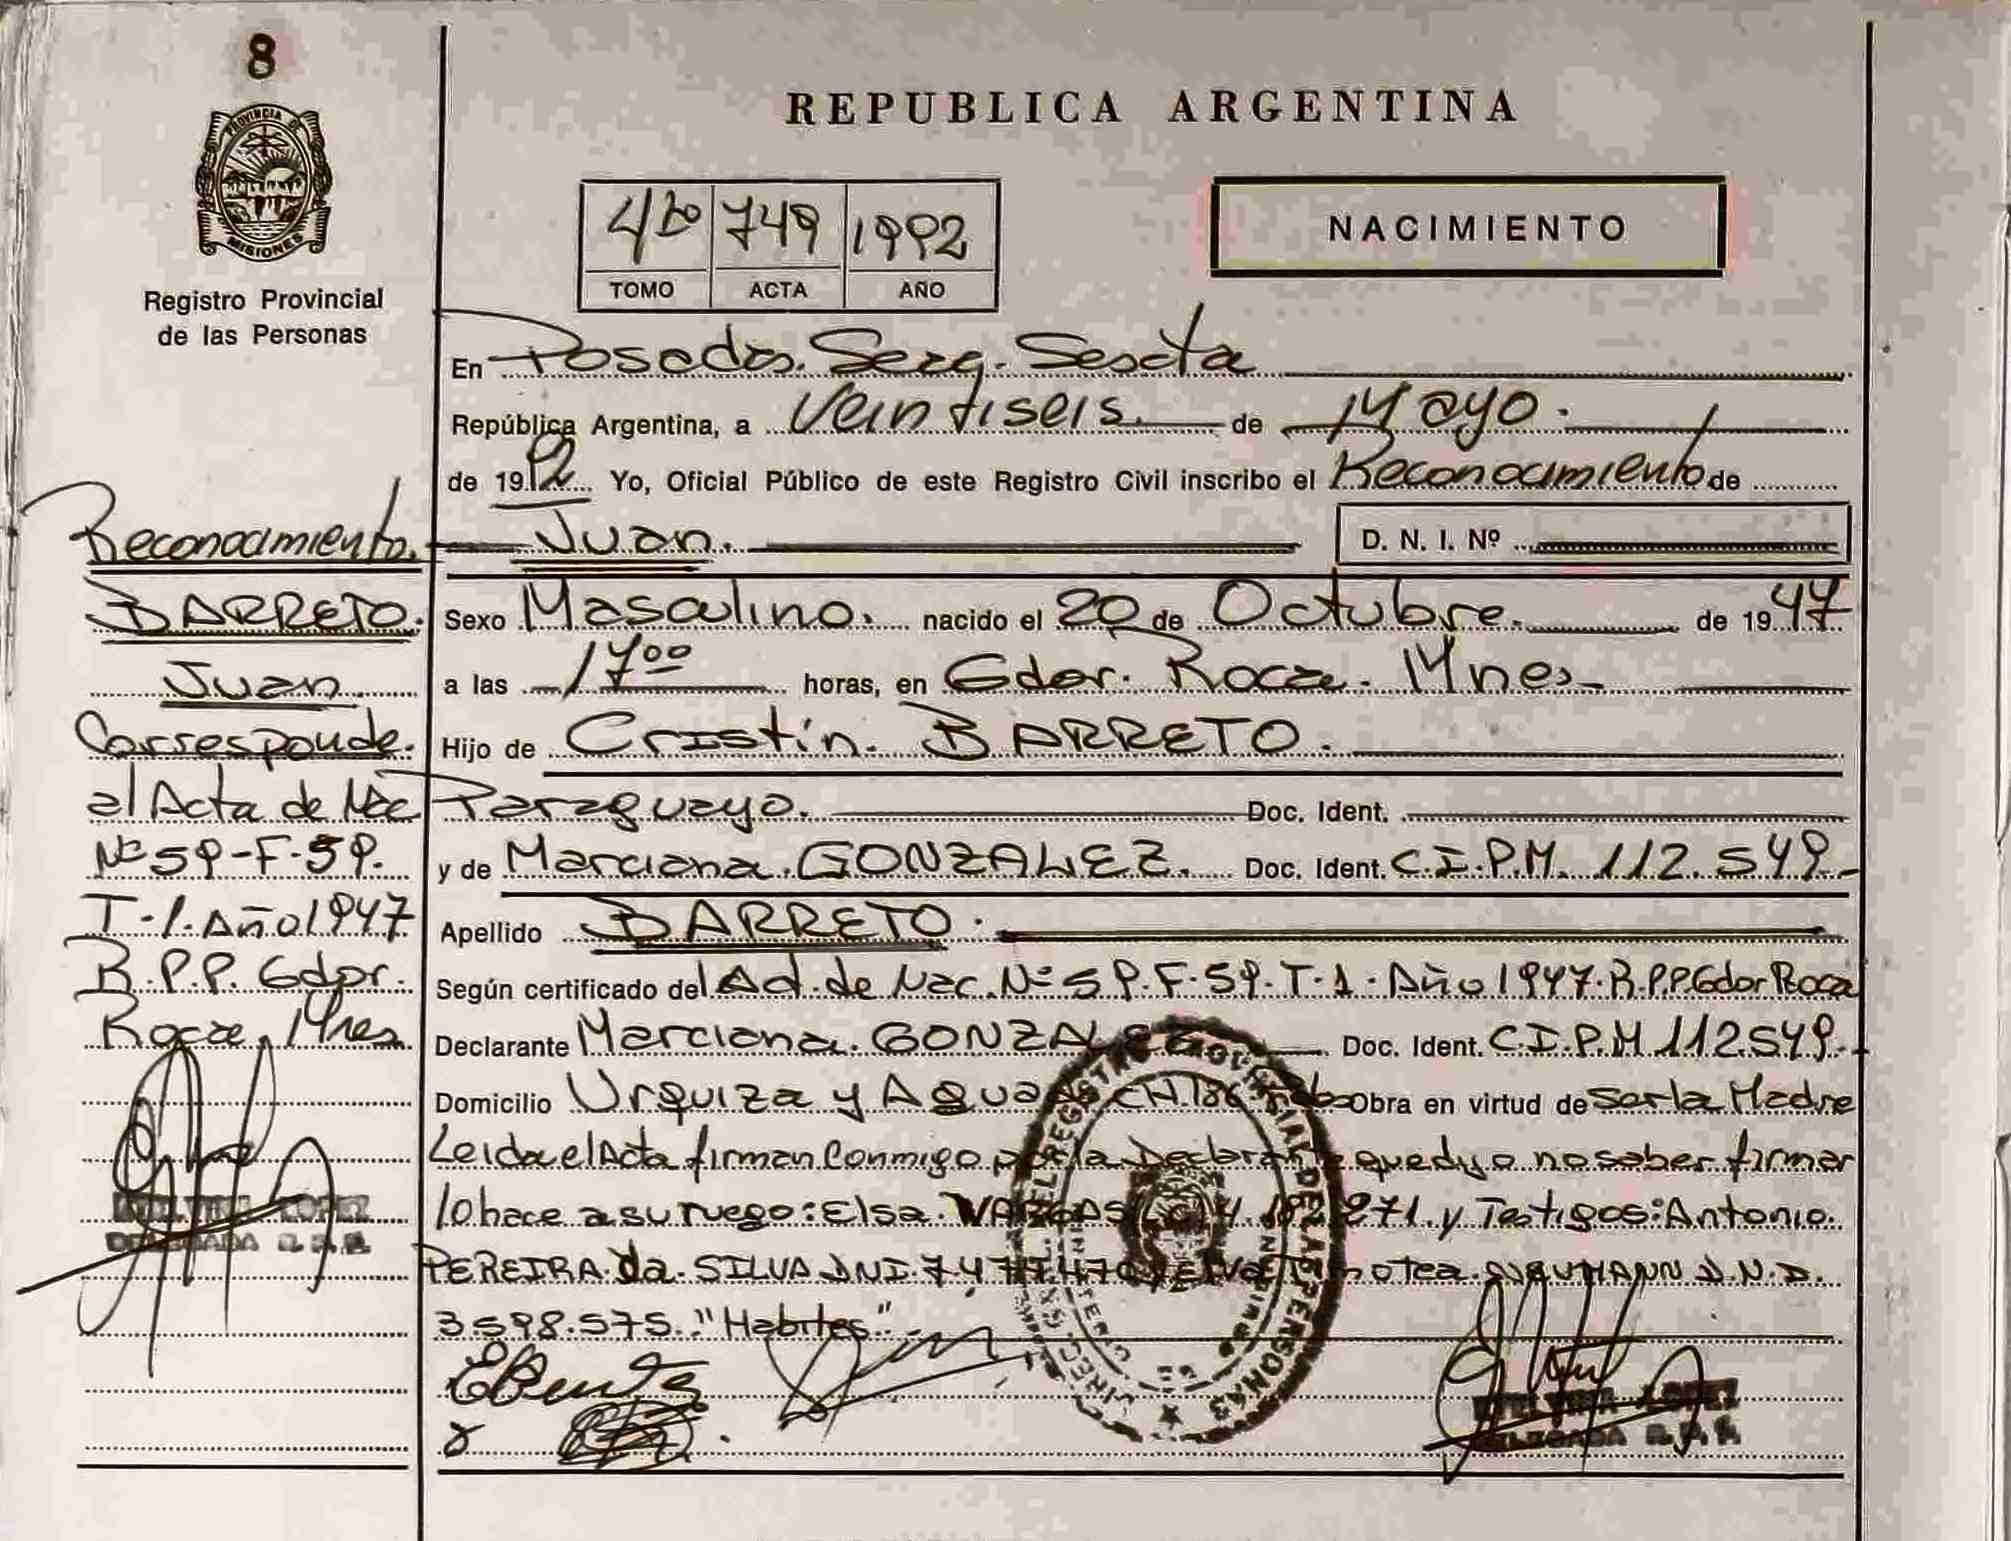 8
REPUBLICA ARGENTINA
PROVINCIA DE
MISIONES
Registro Provincial
de las Personas
4to 749 1992
TOMO ACTA AÑO
NACIMIENTO
En Posadas. Secq. Sescta
República Argentina, a Veintiseis. de Mayo.
de 1992 Yo, Oficial Público de este Registro Civil inscribo el Reconocimiento de
Juan. D. N. I. Nº
Sexo Masculino. nacido el 20 de Octubre. de 1947
a las 17oo horas, en Gdor. Roca. Mnes
Hijo de Cristín. BARRETO.
Paraguayo. Doc. Ident.
y de Marciana. GONZALEZ. Doc. Ident. C.I.P.M. 112.549.
Apellido BARRETO.
Según certificado del Ad. de Nac. Nº 59. F. 59. T. 1. Año 1947. R.P.P. Gdor Roca
Declarante Marciana. GONZALEZ Doc. Ident. C.I.P.M 112.549.
Domicilio Urquiza y CH.186 Obra en virtud de Ser la Madre
Leida el Acta firman Conmigo por la Declarante que dijo no saber firmar
lo hace a su ruego: Elsa. VARGAS 271. y Testigos: Antonio.
PEREIRA. da. SILVA DNI. D.N.I.
3.598.575. "Habites"
Reconocimiento.
BARRETO.
Juan.
Corresponde.
al Acta de Nac
Nº 59-F-59.
T-1. Año 1947
R.P.P. Gdor.
Roca. Mnes
LOPEZ
DELEGADA R.P.P.
LOPEZ
DELEGADA R.P.P.